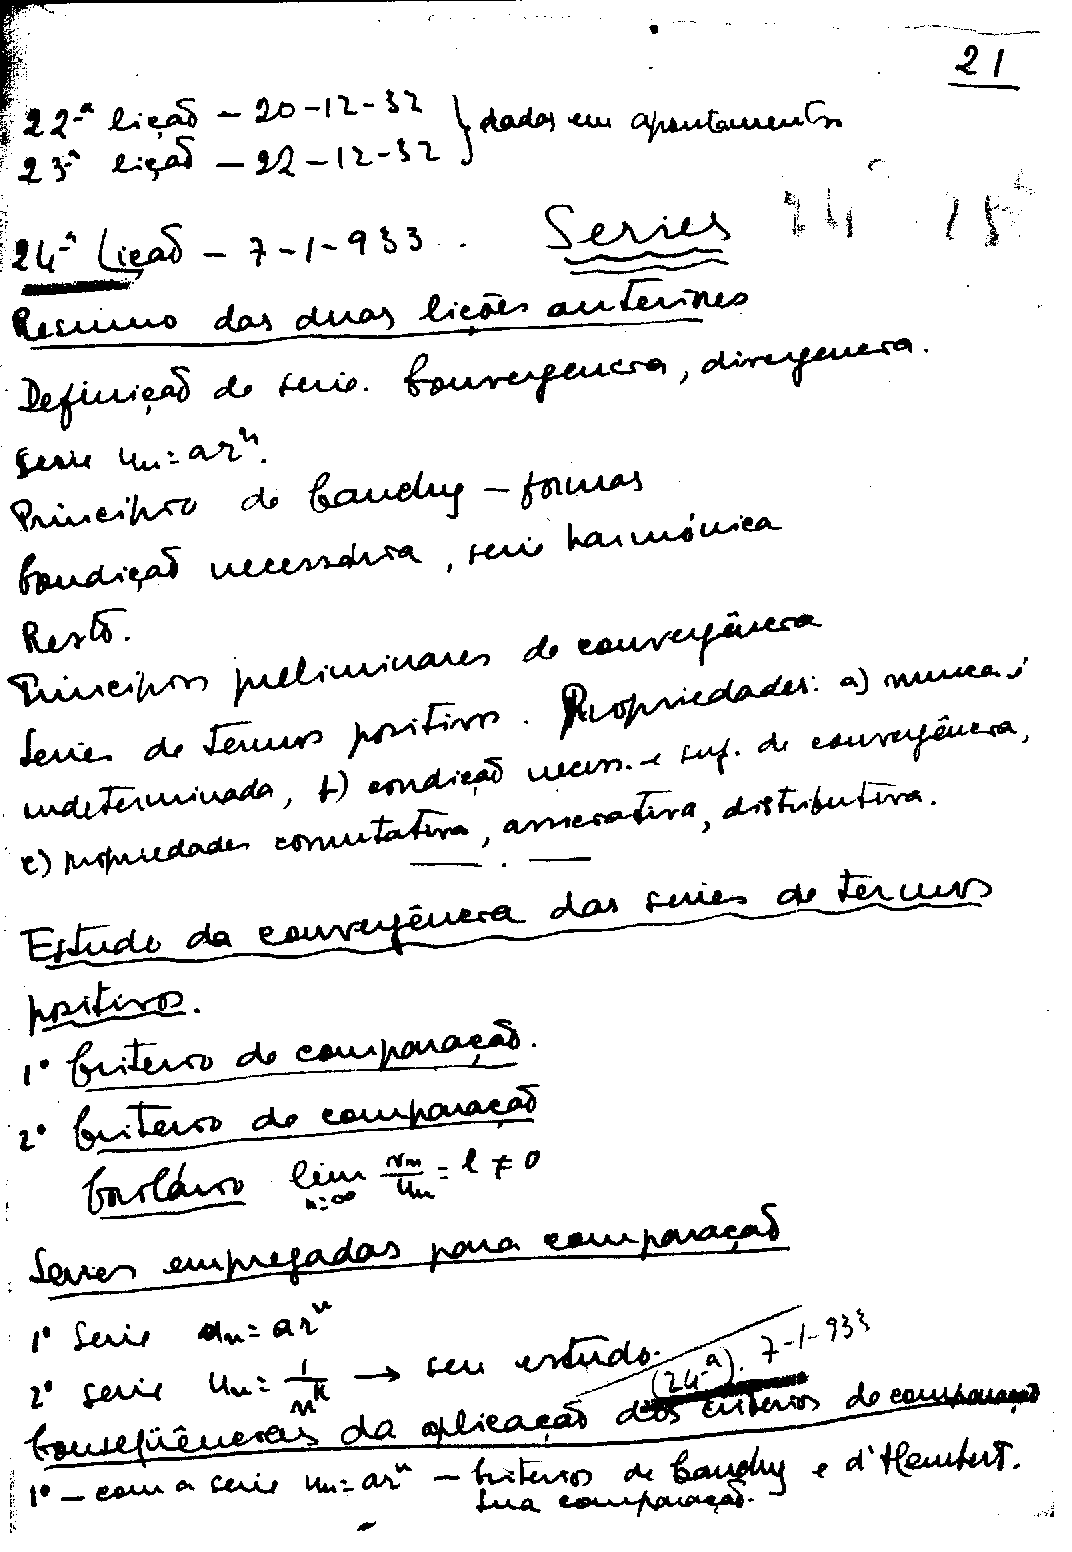 21
22ª lição - 20-12-32 } dadas em apontamentos
23ª lição - 22-12-32
24ª Lição - 7-1-933. Series 24 25
Resumo das duas lições anteriores
Definição de serie. Convergencia, divergencia.
Serie uₙ = arⁿ.
Principio de Cauchy - formas
Condição necessária, serie harmónica
Resto.
Principios preliminares de convergência
Series de termos positivos. Propriedades: a) nunca é
indeterminada, b) condição necess. e suf. de convergência,
c) propriedades comutativa, associativa, distributiva.
Estudo da convergência das series de termos
positivos.
1º Criterio de comparação.
2º Criterio de comparação
Corolário lim n=∞ vₙ/uₙ = l ≠ 0
Series empregadas para comparação
1º Serie uₙ = arⁿ
2º serie uₙ = 1/nᵏ → seu estudo.
(24ª). 7-1-933
Conseqüências da aplicação dos criterios de comparação
1º - com a serie uₙ = arⁿ - Criterios de Cauchy e d'Alembert.
Sua comparação.